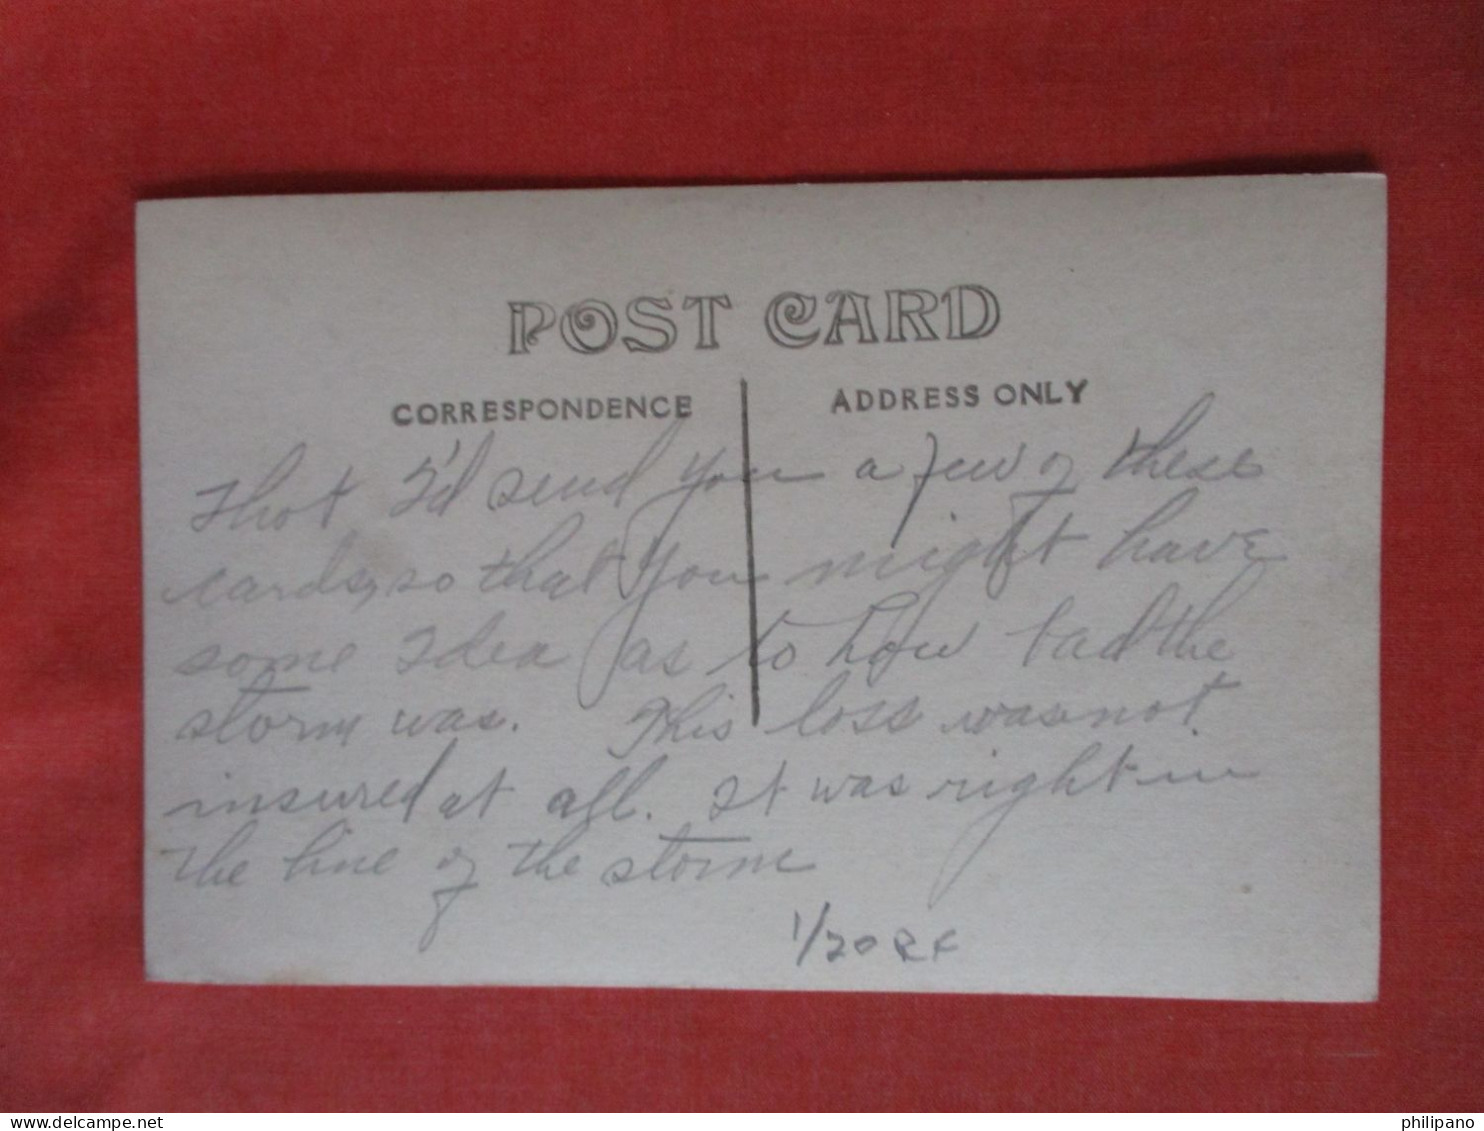 POST CARD
CORRESPONDENCE
ADDRESS ONLY
Thot I'd send you a few of these
cards, so that you might have
some Idea as to how bad the
storm was. This loss was not
insured at all. It was right in
the line of the storm
1/20
philipano
Delcampe.net